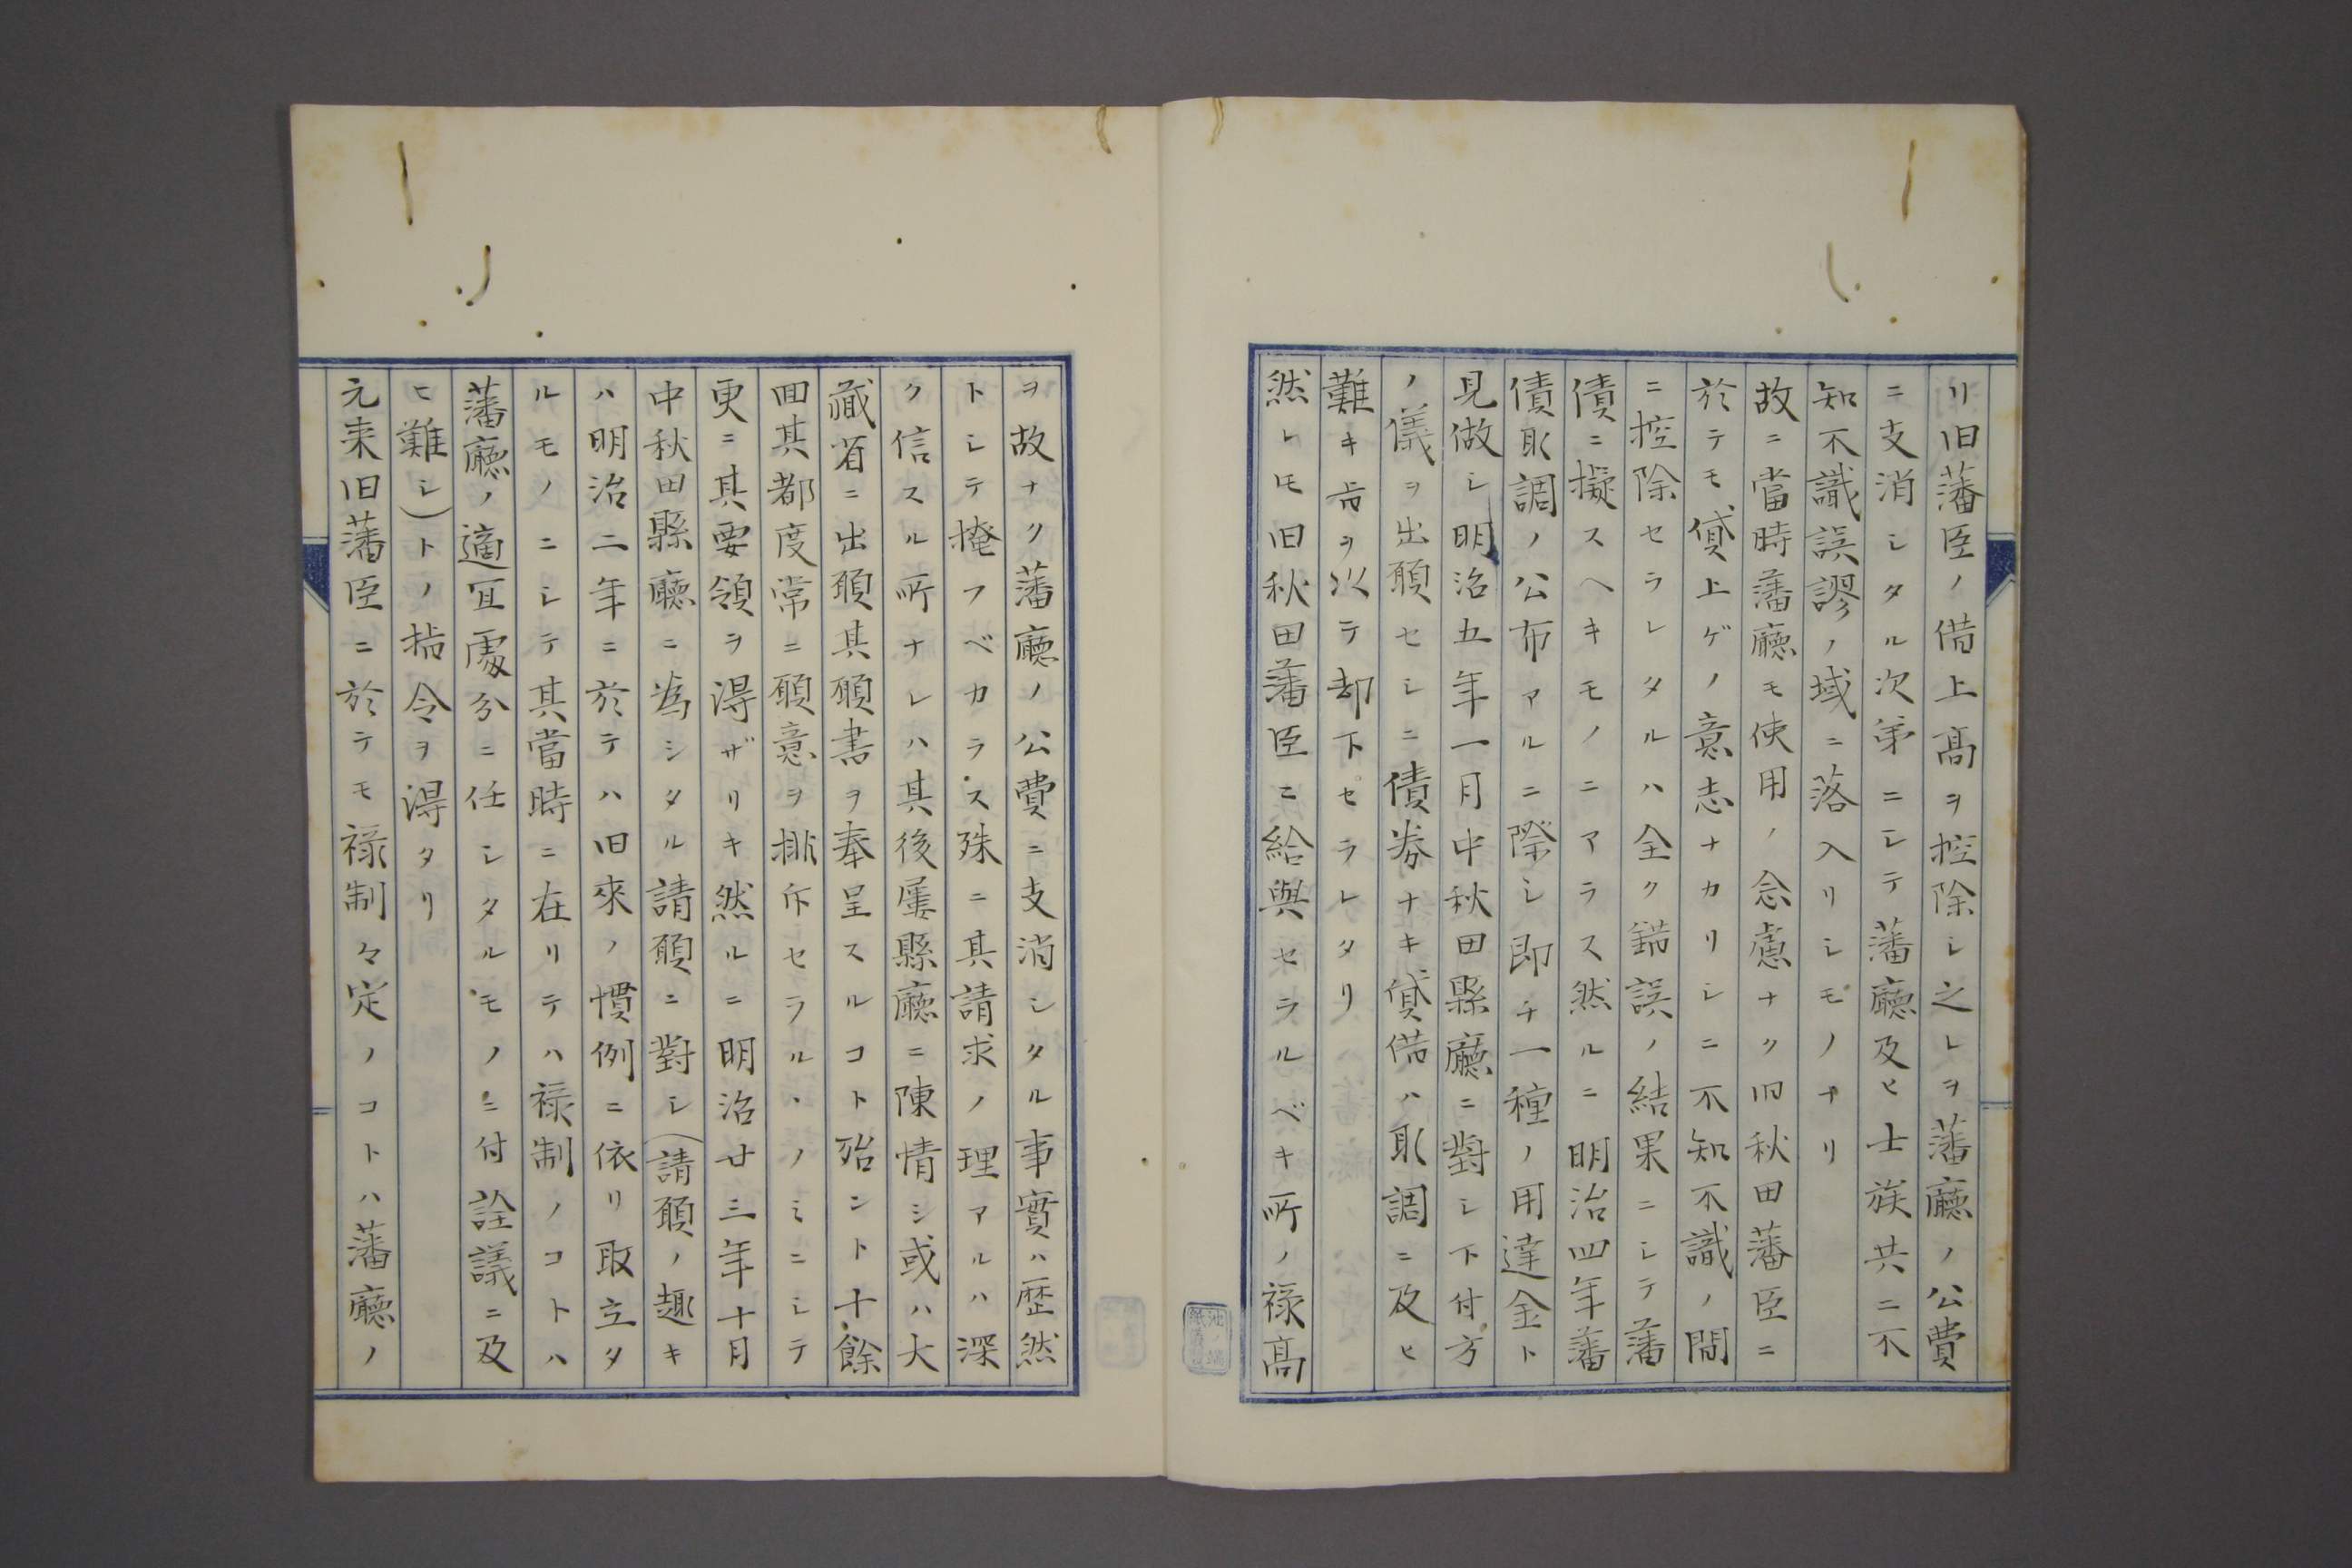 リ旧藩臣ノ借上髙ヲ控除シ之レヲ藩廳ノ公費
ニ支消シタル次第ニシテ藩廳及ヒ士族共ニ不
知不識誤謬ノ域ニ落入リシモノナリ
故ニ當時藩廳モ使用ノ念慮ナク旧秋田藩臣ニ
於テモ貸上ゲノ意志ナカリシニ不知不識ノ間
ニ控除セラレタルハ全ク錯誤ノ結果ニシテ藩
債ニ擬スヘキモノニアラス然ルニ明治四年藩
債取調ノ公布アルニ際シ即チ一種ノ用達金ト
見做シ明治五年一月中秋田縣廳ニ對シ下付方
ノ儀ヲ出願セシニ債券ナキ貸借ハ取調ニ及ヒ
難キ旨ヲ以テ却下セラレタリ
然レ𪜈旧秋田藩臣ニ給與セラルベキ所ノ禄髙
ヲ故ナク藩廳ノ公費ニ支消シタル事實ハ歴然
トシテ掩フベカラス殊ニ其請求ノ理アルハ深
ク信スル所ナレハ其後屡縣廳ニ陳情シ或ハ大
藏省ニ出頭其願書ヲ奉呈スルコト殆ント十餘
回其都度常ニ願意ヲ排斥セラルヽノミニシテ
更ニ其要領ヲ得ザリキ然ルニ明治廿三年十月
中秋田縣廳ニ為シタル請願ニ對シ(請願ノ趣キ
ハ明治二年ニ於テハ旧來ノ慣例ニ依リ取立タ
ルモノニシテ其當時ニ在リテハ禄制ノコトハ
藩廳ノ適宜處分ニ任シタルモノニ付詮議ニ及
ヒ難シ)トノ指令ヲ得タリ
元来旧藩臣ニ於テモ禄制々定ノコトハ藩廳ノ